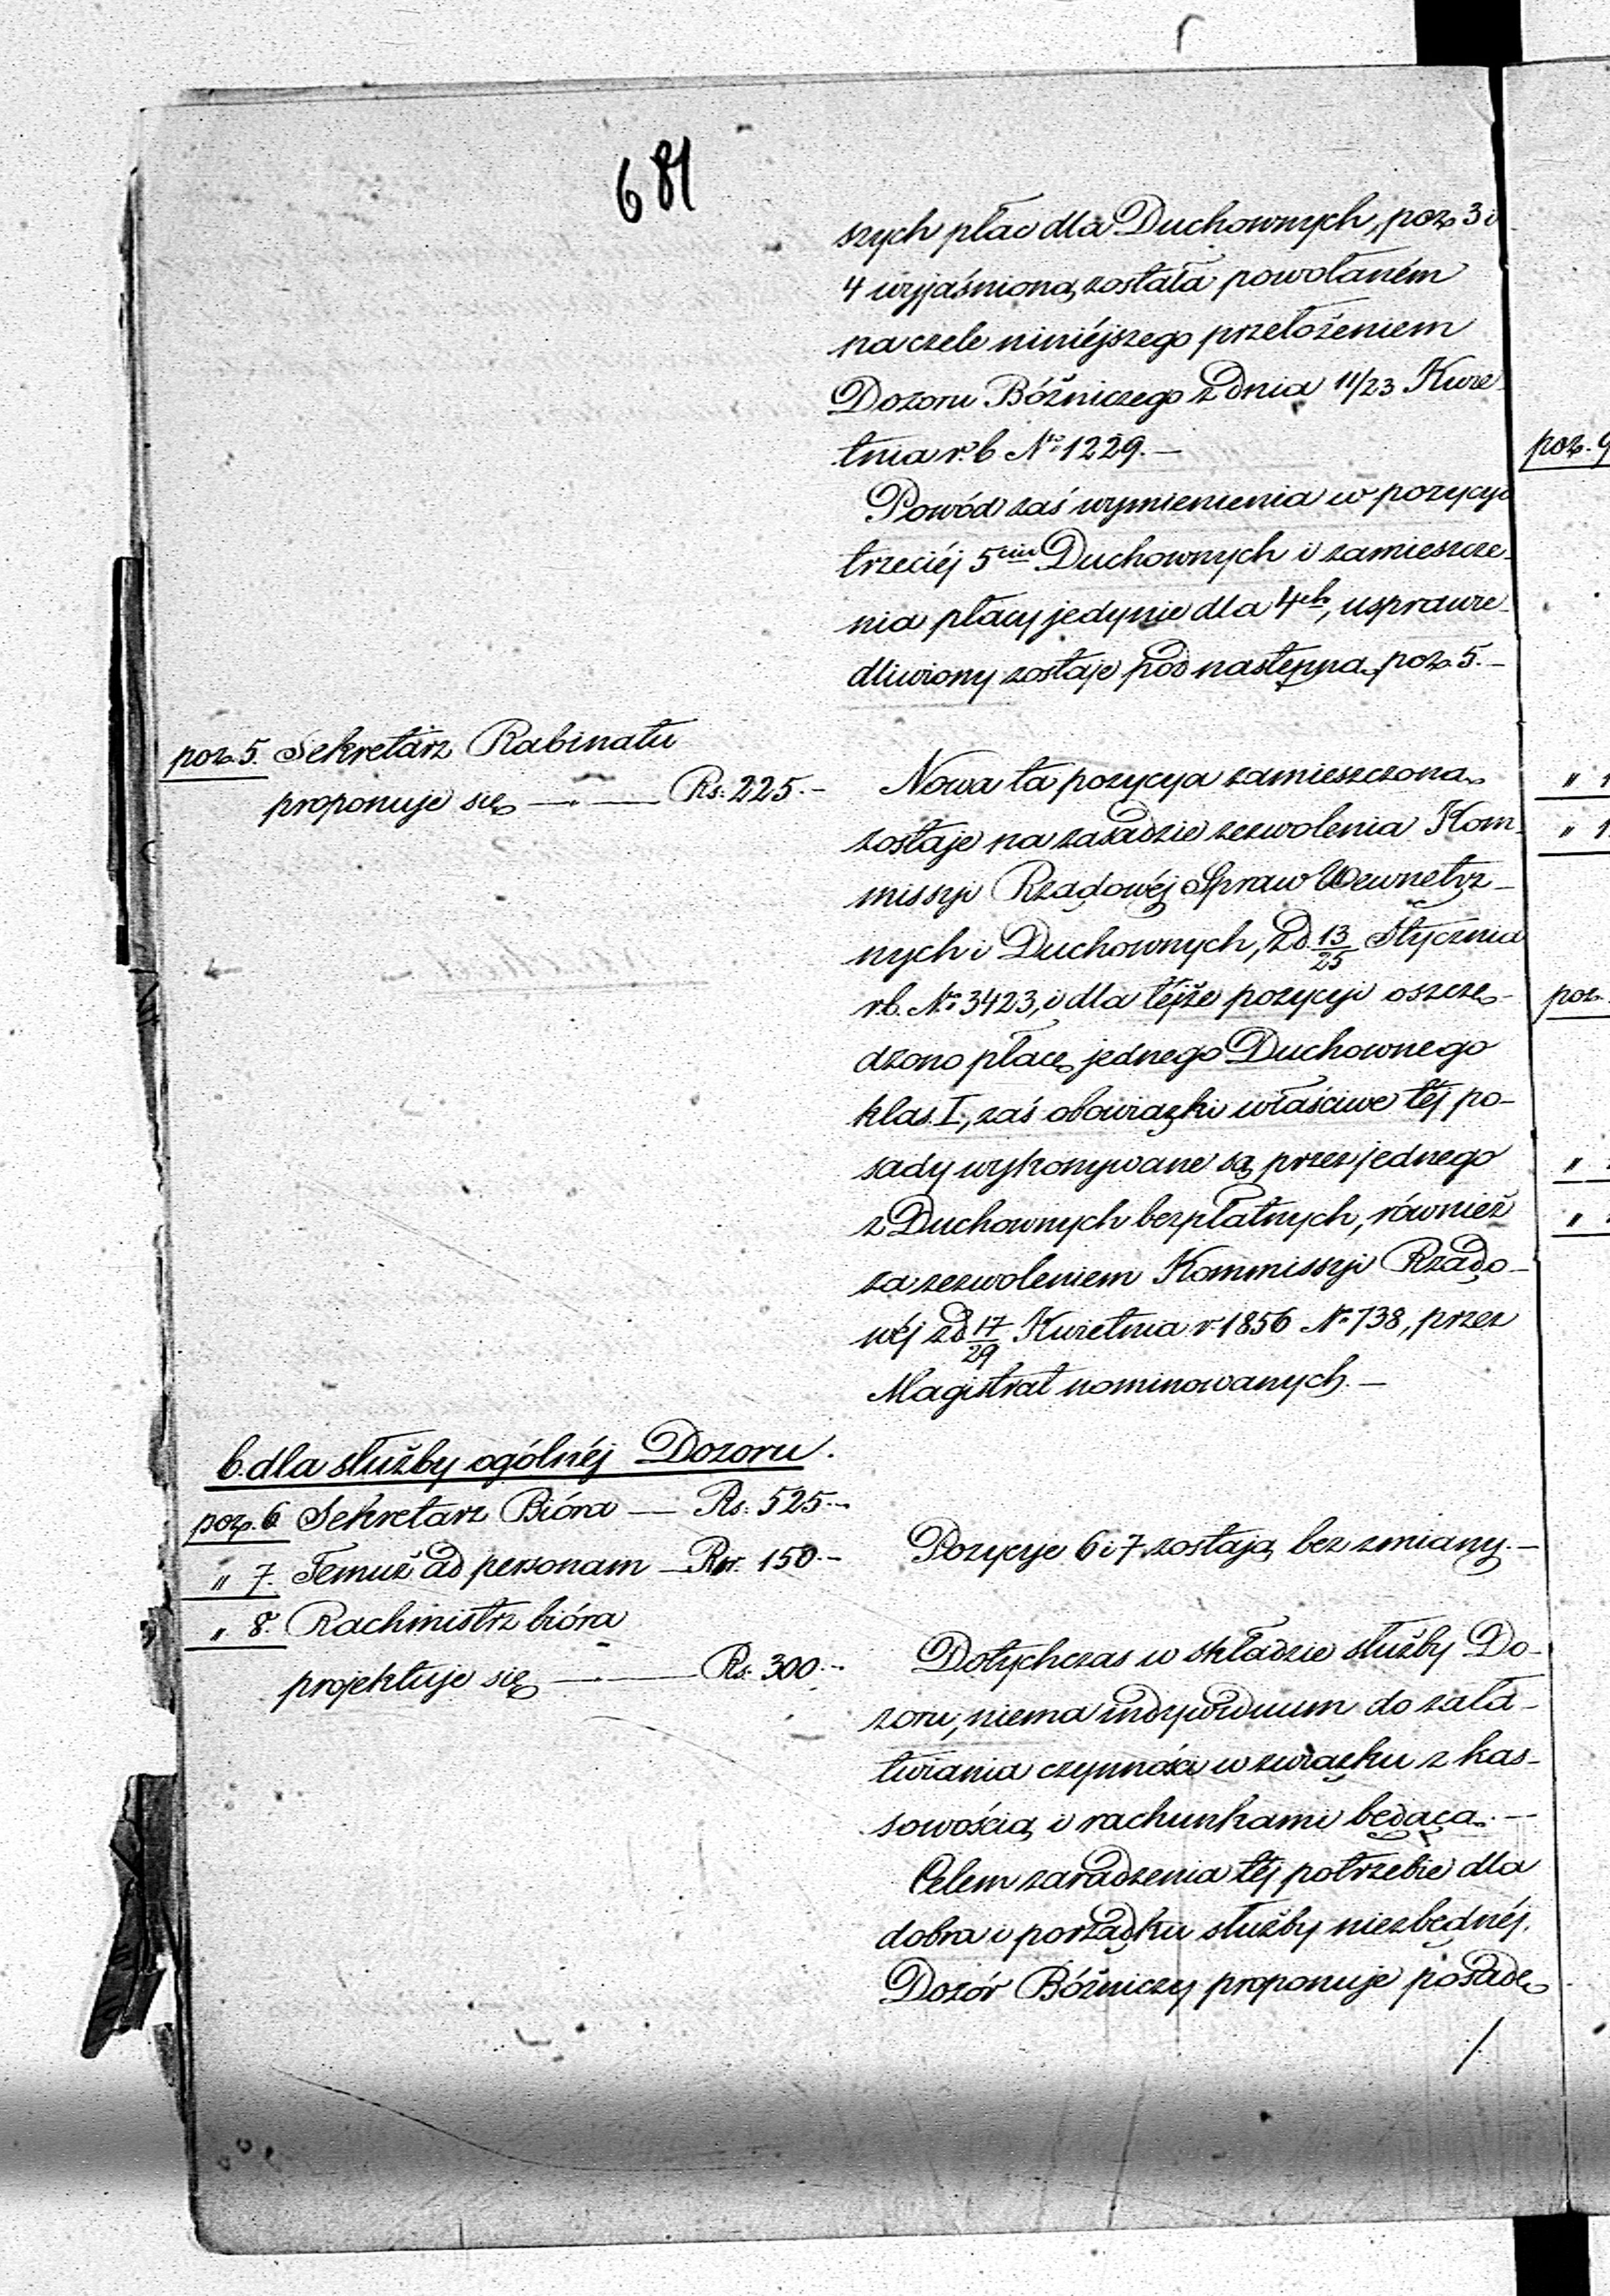 681
szych płac dla Duchownych, poz. 3 i
4 wyjaśnioną została powołaném
na czele niniéjszego przełożeniem
Dozoru Bóżniczego z dnia 11/23 Kwie-
tnia r. b. No 1229.—
Powód zaś wymienienia w pozycyi
trzeciéj 5ciu Duchownych i zamieszcze-
nia płacy jedynie dla 4ch, usprawie-
dliwiony zostaje pod następną poz. 5.—
poz. 5. Sekretarz Rabinatu
proponuje się — Rs. 225.—
Nowa ta pozycya zamieszczoną
zostaje na zasadzie zezwolenia Kom-
missyi Rządowéj Spraw Wewnętrz-
nych i Duchownych, z d. 13/25 Stycznia
r. b. No 3423, i dla téjże pozycyi oszczę-
dzono płacę jednego Duchownego
klas. I, zaś obowiązki właściwe téj po-
sady wykonywane są przez jednego
z Duchownych bezpłatnych, również
za zezwoleniem Kommissyi Rządo-
wéj z d. 17/29 Kwietnia r. 1856 No 738, przez
Magistrat nominowanych.—
b. dla służby ogólnéj Dozoru.
poz. 6 Sekretarz Bióra — Rs. 525.—
" 7. Temuż ad personam — Rsr. 150.—
Pozycye 6 i 7 zostają bez zmiany.—
" 8. Rachmistrz bióra
projektuje się — Rs. 300.—
Dotychczas w składzie służby Do-
zoru, niema indywiduum do zała-
twiania czynności w związku z kas-
sowością i rachunkami będącą.—
Celem zaradzenia téj potrzebie dla
dobra i porządku służby niezbędnéj,
Dozór Bóżniczy proponuje posadę
/
poz. 9
" 1
" 1
poz.
"
"